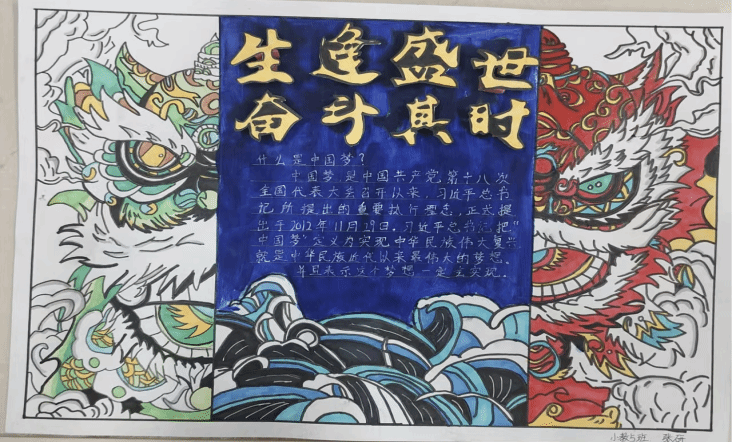 生逢盛世
奋斗其时
什么是中国梦？
中国梦，是中国共产党第十八次
全国代表大会召开以来，习近平总书
记所提出的重要执行理念，正式提
出于2012年11月29日。习近平总书记把“
中国梦”定义为实现中华民族伟大复兴
就是中华民族近代以来最伟大的梦想。
并且表示这个梦想一定会实现。
小教5班